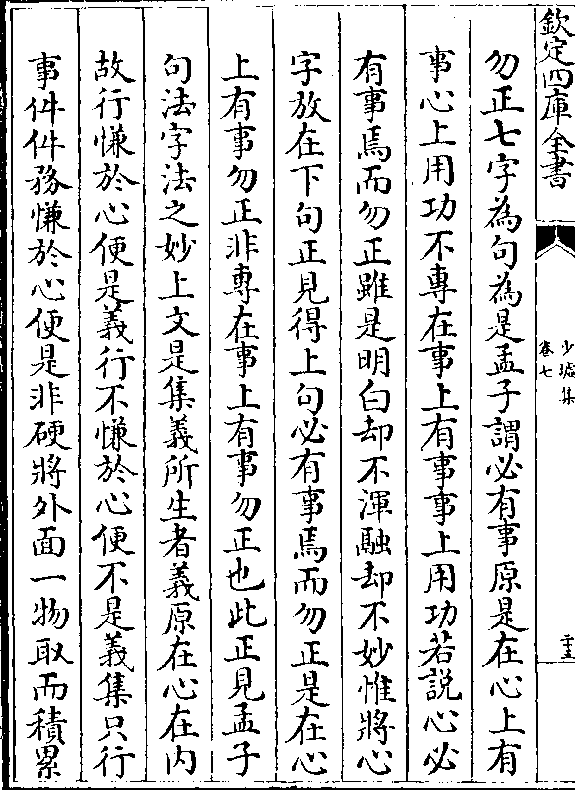 欽定四庫全書
少墟集
卷七
二十五
勿正七字為句為是孟子謂必有事原是在心上有
事心上用功不專在事上有事事上用功若説心必
有事焉而勿正雖是明白却不渾融却不妙惟將心
字放在下句正見得上句必有事焉而勿正是在心
上有事勿正非專在事上有事勿正也此正見孟子
句法字法之妙上文是集義所生者義原在心在内
故行慊於心便是義行不慊於心便不是義集只行
事件件務慊於心便是非硬將外面一物取而積累